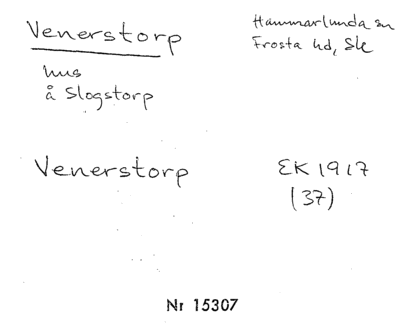 Venerstorp
Hammarlunda sn
Frosta hd, Sk
hus
å Slogstorp
Venerstorp
EK 1917
(37)
Nr 15307